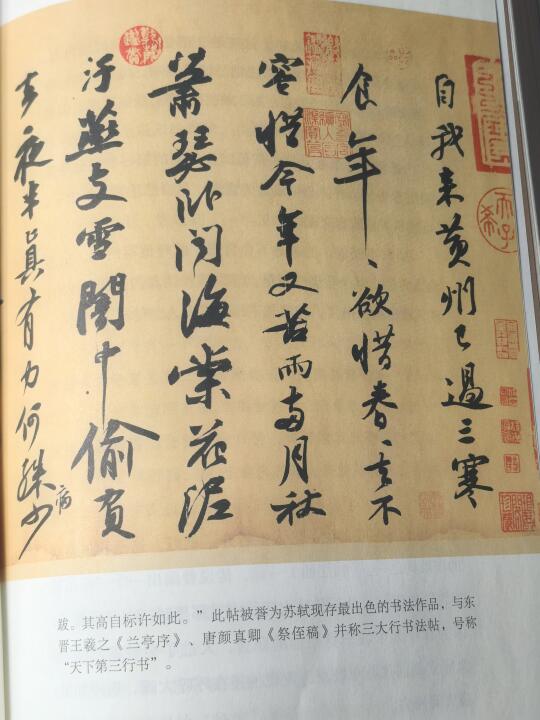 自我来黄州已過三寒
食年ヽ欲惜春ヽ去不
容惜今年又苦雨兩月秋
蕭瑟卧聞海棠花泥
汙燕支雪闇中偷負
去夜半真有力何殊少
病
跋。其高自标许如此。”此帖被誉为苏轼现存最出色的书法作品，与东
晋王羲之《兰亭序》、唐颜真卿《祭侄稿》并称三大行书法帖，号称
“天下第三行书”。